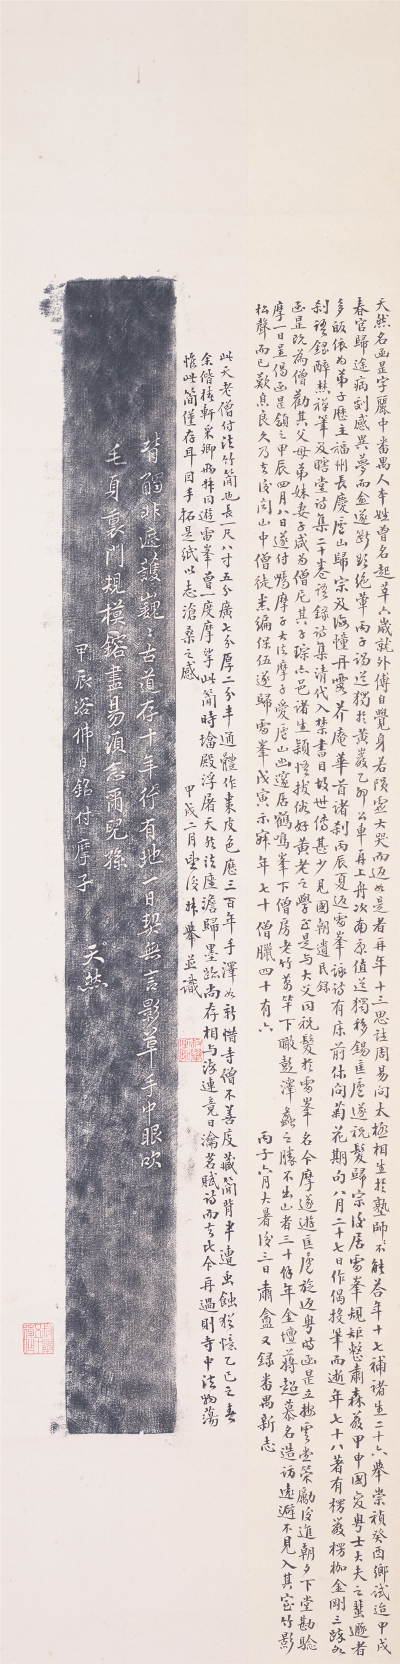 天然名函昰字麗中番禺人本姓曾名起莘六歲就外傅自覺身若隕虛大哭而返如是者再年十三思註周易問太極相生於塾師不能荅年十七補諸生二十六舉崇禎癸酉鄉試迨甲戌
春官歸途病劇感異夢而愈遂斷欲絕葷丙子謁道獨於黃巖乙卯公車再上舟次南康值道獨移錫匡廬遂祝髮歸宗後居雷峯規矩整肅森嚴甲申國變粵士大夫之蜚遯者
多皈依為弟子歷主福州長慶廬山歸宗及海幢丹霞介庵華首諸剎丙辰夏返雷峯詠詩有床前休問菊花期句八月二十七日作偈投筆而逝年七十八著有楞嚴楞伽金剛三疏各
剎語錄醉焚祥筆及瞎堂詩集二十卷語錄詩集清代入禁書目故世傳甚少見國朝遺民錄
函昰既為僧勸其父母弟妹妻子咸為僧尼其子琮亦邑諸生穎悟拔俗好黃老之學函昰與大父同祝髮於雷峯名今摩遂遊匡廬旋返粵時函昰立梅雲堂策勵後進朝夕下堂勘驗
摩一日呈偈函昰頷之甲辰四月八日遂付囑摩子大法摩子愛廬山幽邃居鶴鳴峯下僧房老竹萬竿下瞰彭澤蠡之勝不出山者三十餘年金壇蔣超慕名造訪遠避不見入其室竹影
松聲而已歎息良久乃去後閩山中僧徒悉編保伍遂歸雷峯戊寅示寂年七十僧臘四十有六 丙子六月大暑後三日肅盦又錄番禺新志
此天老僧付法竹簡也長一尺八寸五分廣七分厚二分半通體作棗皮色應三百年手澤如新惜寺僧不善庋藏簡背半遭虫蝕猶憶乙巳之春
余偕梧軒采卿兩姊同遊雷峯曾一度摩挲此簡時墖殿浮屠天然法座澹歸墨跡尚存相与流連竟日瀹茗賦詩而去比今再過則寺中法物蕩
惟此簡僅存耳因手拓是紙以志滄桑之感 甲戌二月望後 舉並識
背觸非遮護巍〻古道存十年行有地一日契無言影草手中眼吹
毛身裏門規模鎔盡易須念爾兒孫
甲辰浴佛日銘付摩子
天然